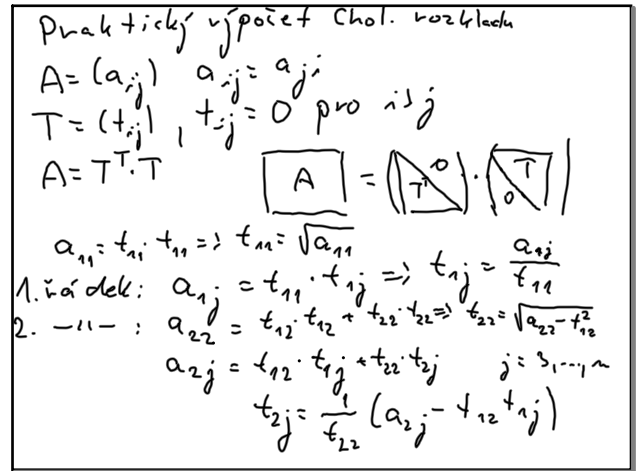 Praktický výpočet Chol. rozkladu
A = (a_ij)   a_ij = a_ji
T = (t_ij), t_ij = 0 pro i>j
A = T^T · T   A = (T^T 0) · (T 0)
a_11 = t_11 · t_11 => t_11 = √a_11
1. řádek: a_1j = t_11 · t_1j => t_1j = a_1j / t_11
2. -"- : a_22 = t_12 · t_12 + t_22 · t_22 => t_22 = √(a_22 - t_12^2)
a_2j = t_12 · t_1j + t_22 · t_2j   j = 3,...,n
t_2j = 1/t_22 (a_2j - t_12 t_1j)